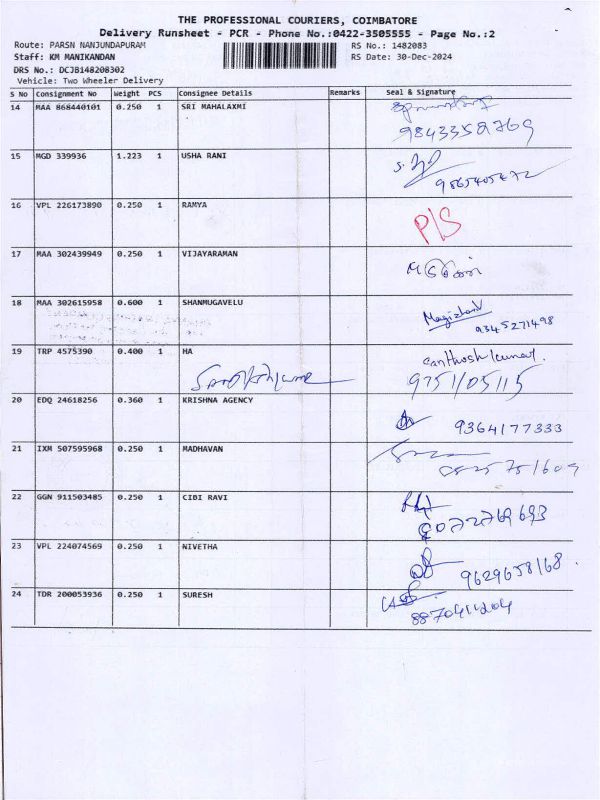 THE PROFESSIONAL COURIERS, COIMBATORE
Delivery Runsheet - PCR - Phone No.:0422-3505555 - Page No.:2
Route: PARSN NANJUNDAPURAM
RS No.: 1482083
Staff: KM MANIKANDAN
RS Date: 30-Dec-2024
DRS No.: DCJB148208302
Vehicle: Two Wheeler Delivery
S No Consignment No Weight PCS Consignee Details Remarks Seal & Signature
14 MAA 868440101 0.250 1 SRI MAHALAXMI
9843358769
15 MGD 339936 1.223 1 USHA RANI
9865405472
16 VPL 226173890 0.250 1 RAMYA
P/S
17 MAA 302439949 0.250 1 VIJAYARAMAN
18 MAA 302615958 0.600 1 SHANMUGAVELU
9345271498
19 TRP 4575390 0.400 1 HA
Santhosh kumar.
9751105115
20 EDQ 24618256 0.360 1 KRISHNA AGENCY
9364177333
21 IXM 507595968 0.250 1 MADHAVAN
22 GGN 911503485 0.250 1 CIBI RAVI
23 VPL 224074569 0.250 1 NIVETHA
9629658168
24 TDR 200053936 0.250 1 SURESH